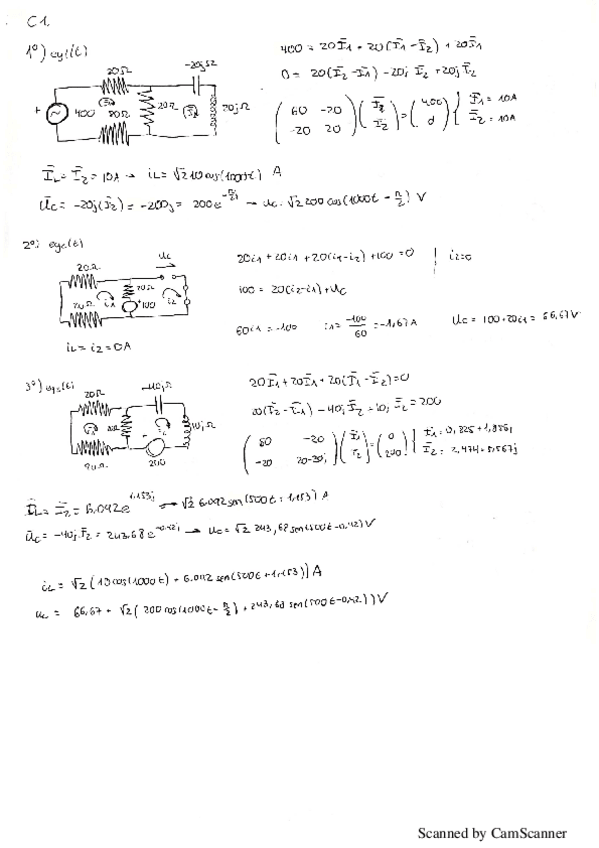 C1.
1º) eg1(t)
20Ω -20jΩ
400 20Ω 20Ω 20jΩ
400 = 20I1 + 20(I1 - I2) + 20I1
0 = 20(I2 - I1) - 20j I2 + 20j I2
(60 -20 / -20 20) (I1 / I2) = (400 / 0) { I1 = 10A / I2 = 10A
IL = I2 = 10A → iL = √2 10 cos(1000t) A
UC = -20j(I2) = -200j = 200e^(-π/2j) → uc = √2 200 cos(1000t - π/2) V
2º)
20Ω uc
20Ω 20Ω 100 i1 i2
20i1 + 20i1 + 20(i1-i2) + 100 = 0 | i2=0
100 = 20(i2-i1) + uc
60i1 = -100 i1 = -100/60 = -1,67A uc = 100+20i1 = 66,67V
iL = i2 = 0A
3º)
20Ω -40jΩ
20Ω 10jΩ
20Ω 200
20I1 + 20I1 + 20(I1 - I2) = 0
20(I2 - I1) - 40j I2 + 10j I2 = 200
-20 20-30j 0 200
IL = I2 = 6.042e^(1.153j) → √2 6.042 sen(500t + 1,153) A
UC = -40j.I2 = 243.68 e^(-0.42j) → uc = √2 243,68 sen(500t-0.42) V
iL = √2 (10 cos(1000t) + 6.042 sen(500t + 1.153)) A
uc = 66,67 + √2 (200 cos(1000t - π/2) + 243,68 sen(500t-0.42)) V
Scanned by CamScanner